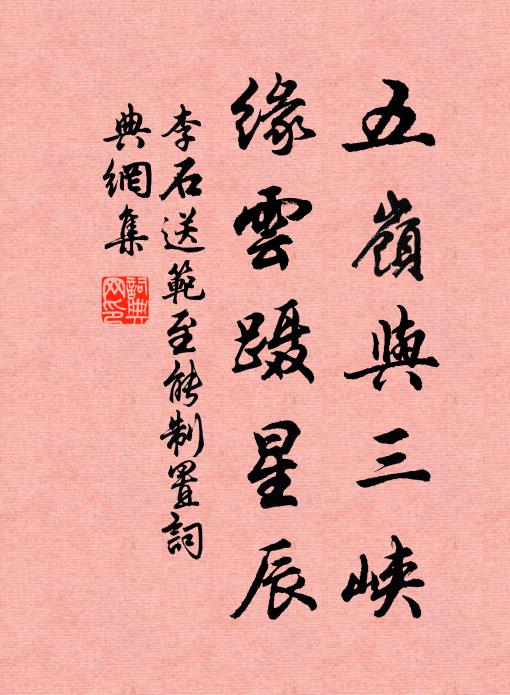 五嶺與三峽
緣雲躡星辰
李石送範至能制置詞
典網集
詞典
网印